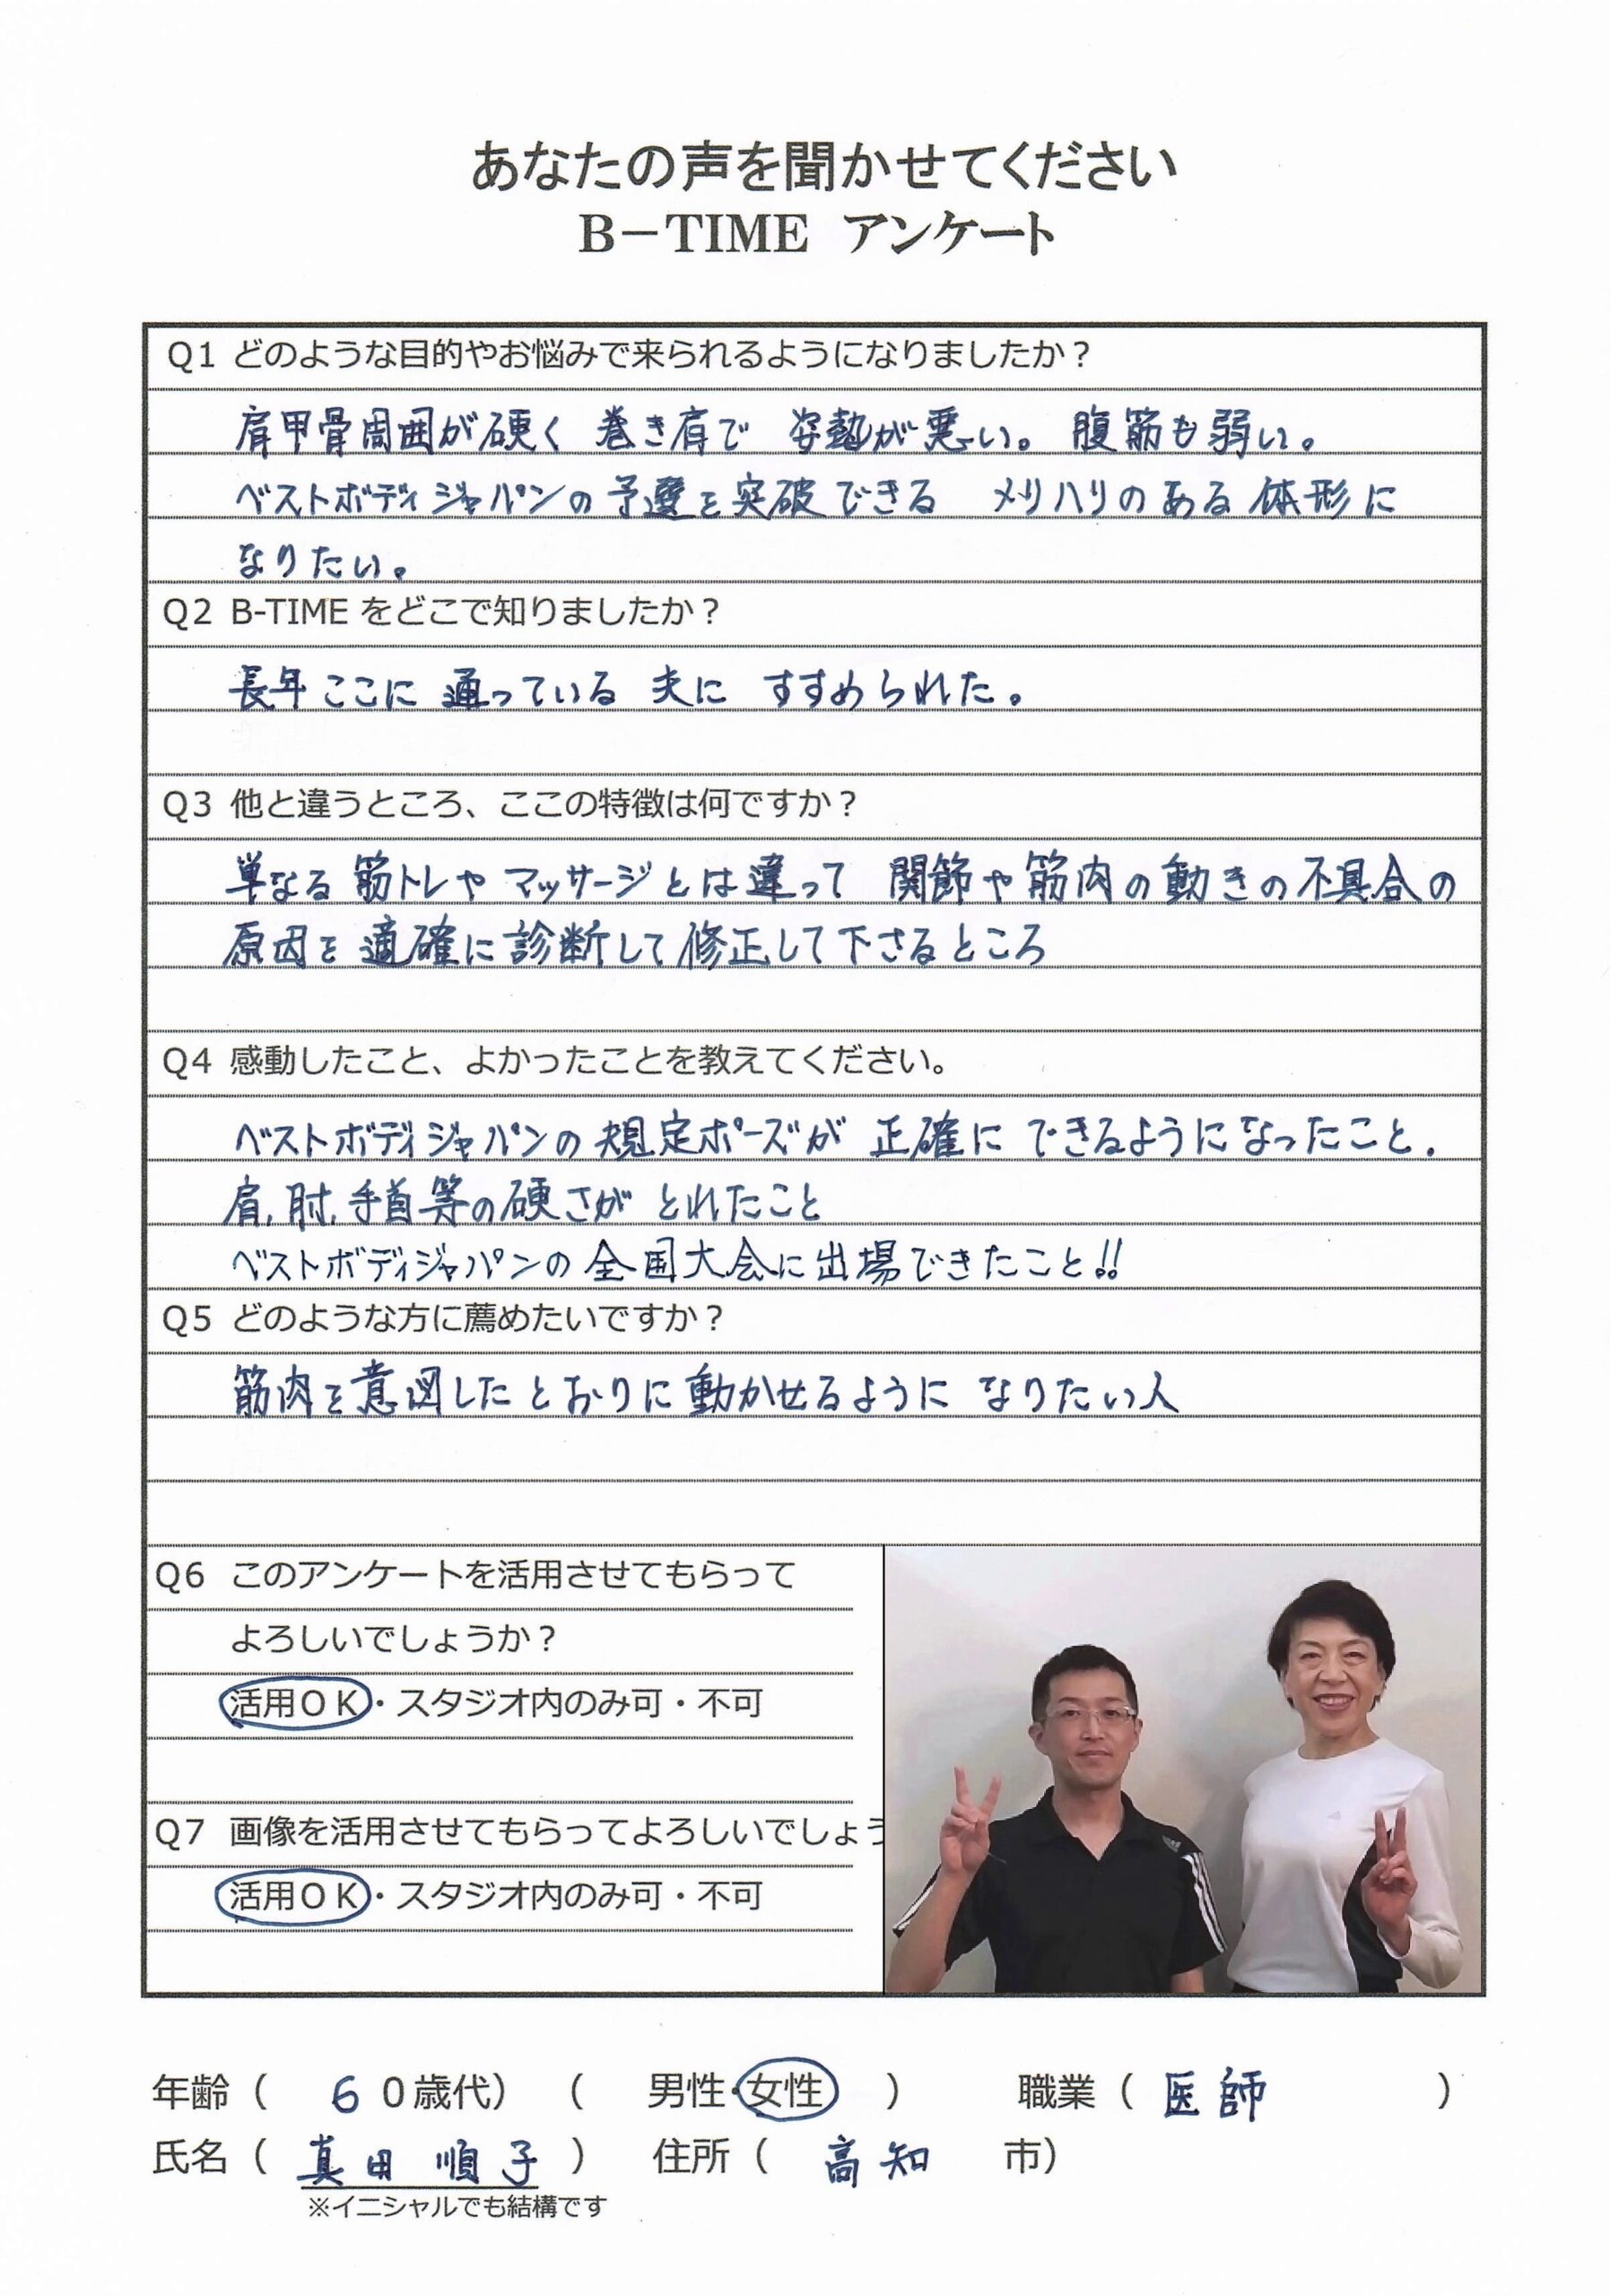 あなたの声を聞かせてください
B－TIME　アンケート
Q1 どのような目的やお悩みで来られるようになりましたか？
肩甲骨周囲が硬く 巻き肩で 姿勢が悪い。 腹筋も弱い。
ベストボディジャパンの予選を突破できる メリハリのある体形に
なりたい。
Q2 B-TIME をどこで知りましたか？
長年ここに 通っている 夫に すすめられた。
Q3 他と違うところ、ここの特徴は何ですか？
単なる筋トレや マッサージとは違って 関節や筋肉の動きの不具合の
原因を適確に診断して修正して下さるところ
Q4 感動したこと、よかったことを教えてください。
ベストボディジャパンの規定ポーズが 正確に できるようになったこと.
肩,肘,手首等の硬さが とれたこと
ベストボディジャパンの全国大会に出場できたこと!!
Q5 どのような方に薦めたいですか？
筋肉を意図したとおりに動かせるように なりたい人
Q6 このアンケートを活用させてもらって
よろしいでしょうか？
活用ＯＫ・スタジオ内のみ可・不可
Q7 画像を活用させてもらってよろしいでしょう
活用ＯＫ・スタジオ内のみ可・不可
年齢（ 6０歳代）（ 男性・女性 ） 職業（ 医師 ）
氏名（ 真田 順子 ） 住所（ 高知 市）
※イニシャルでも結構です